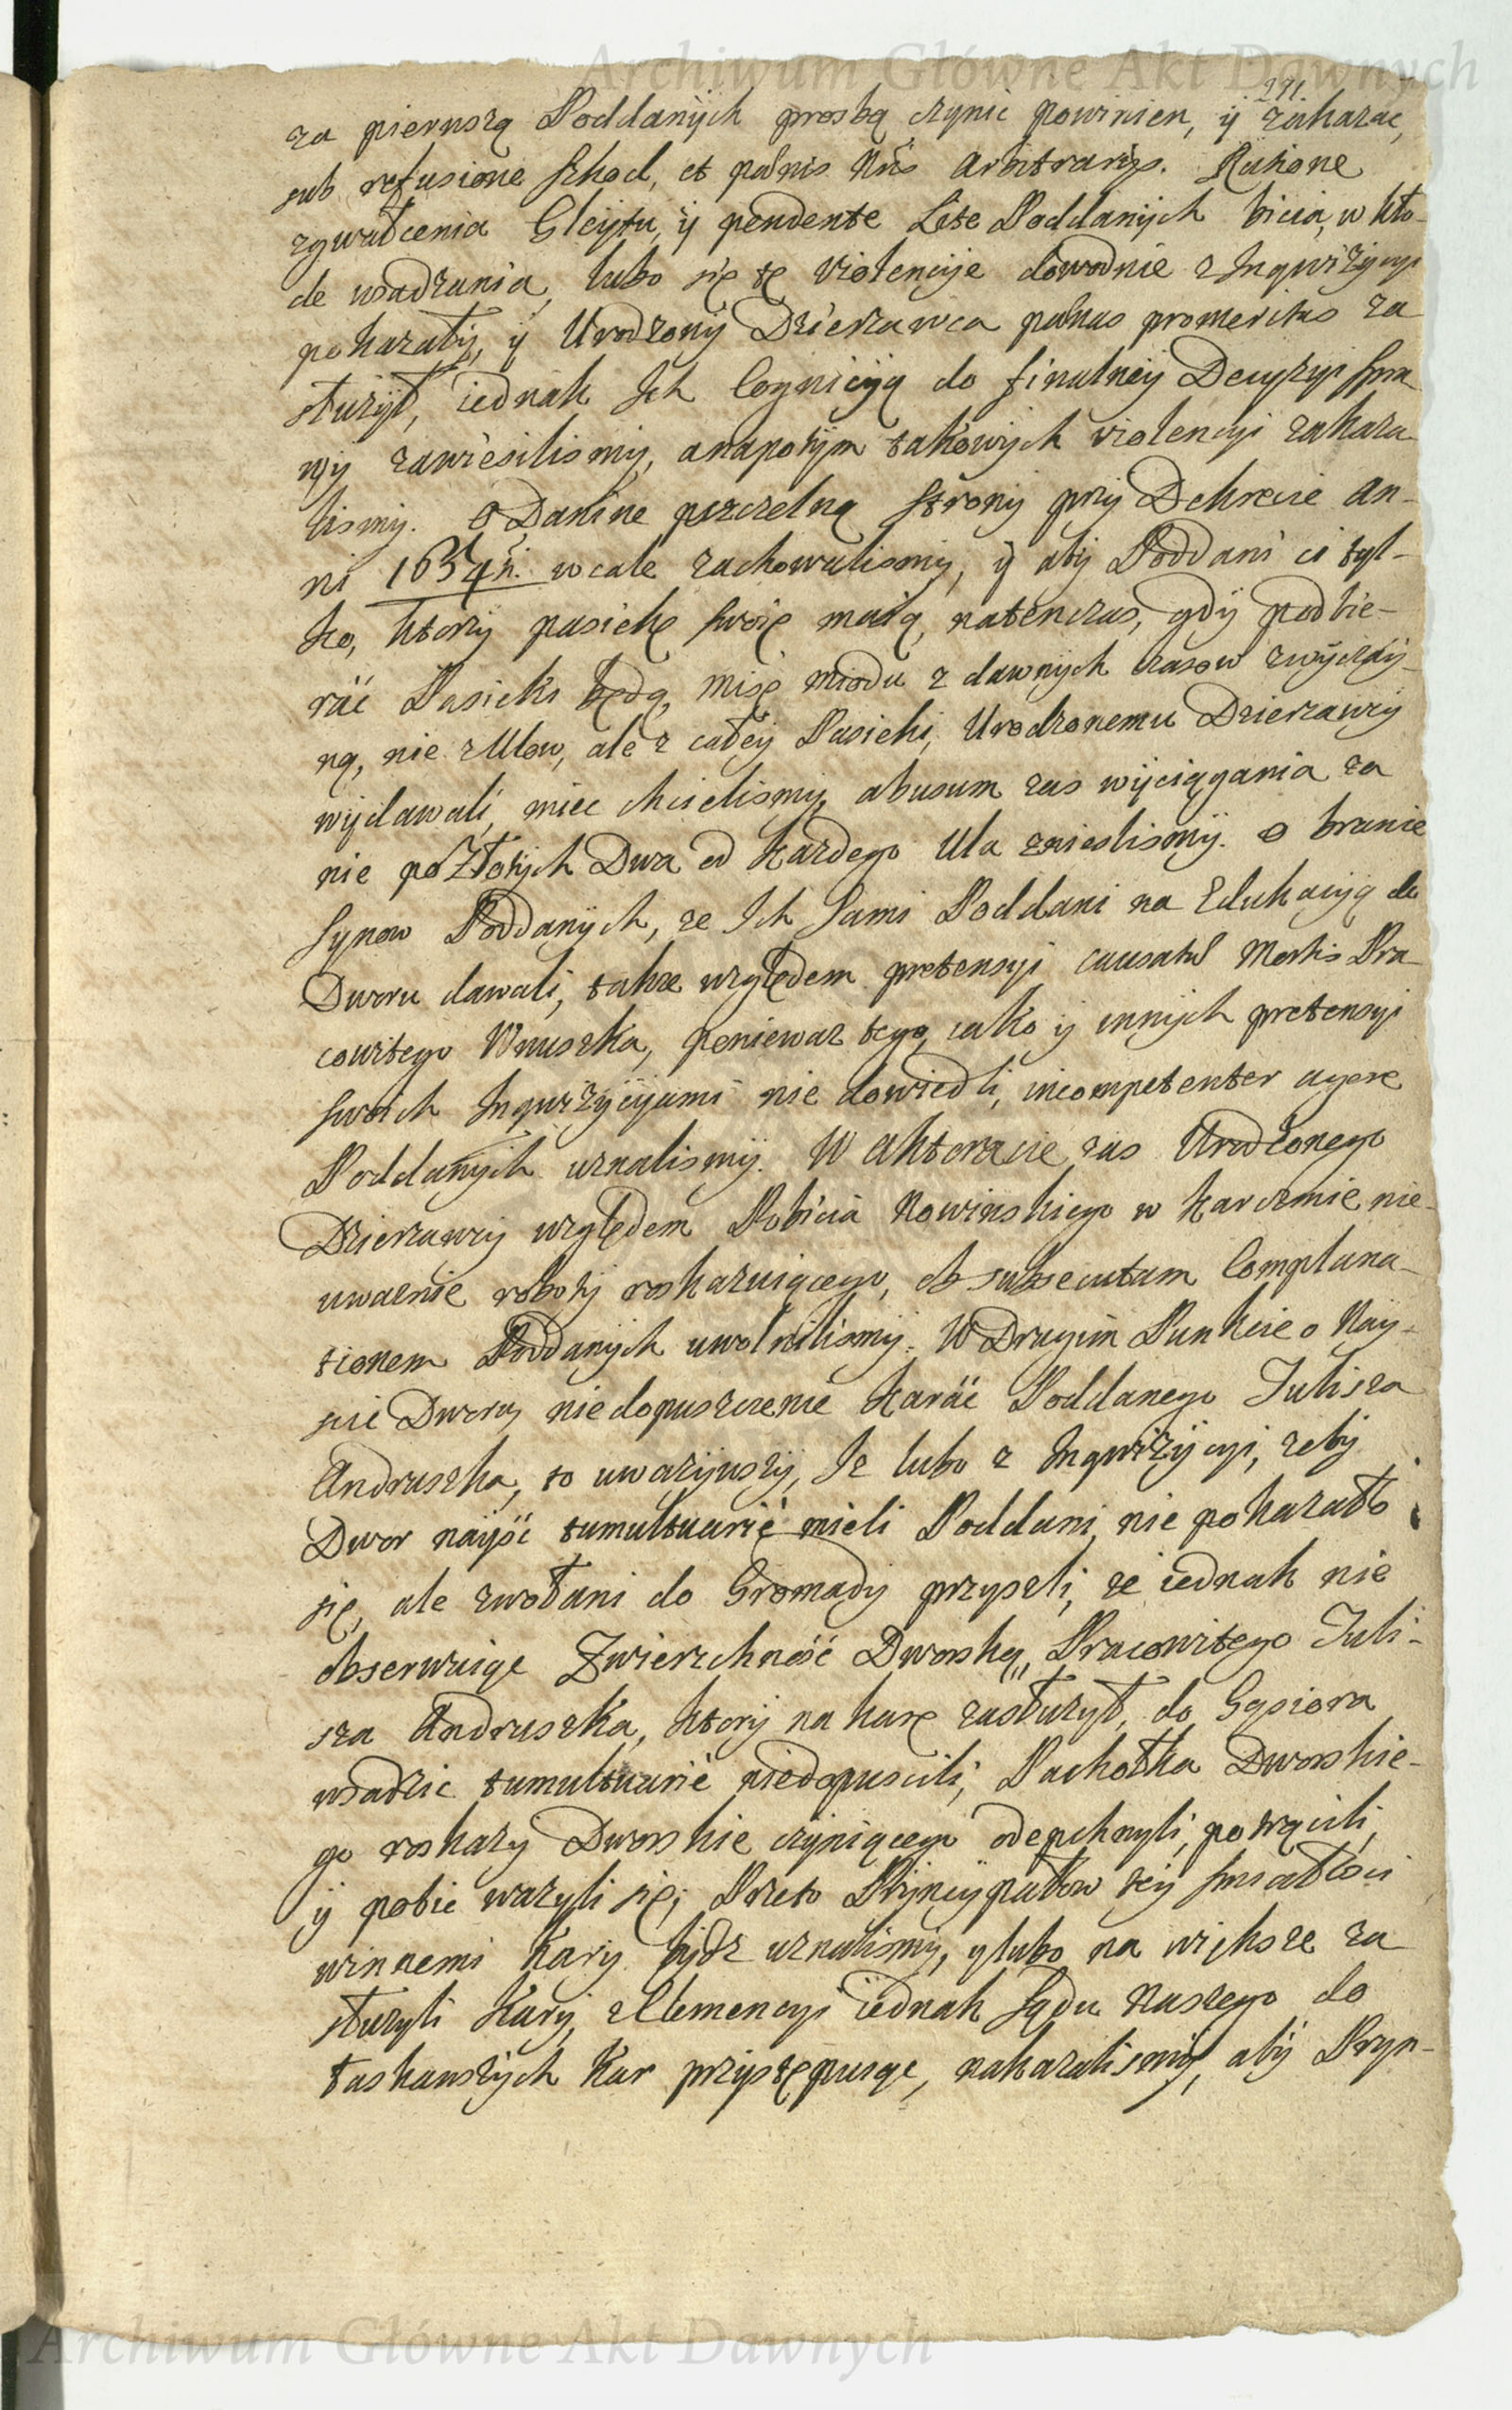 Archiwum Główne Akt Dawnych
171
za pierwszą Poddanÿch prozbą czynić powinien, ÿ zakazać,
sub refusione szkod, et pænis Nris Arbitrarÿs. Ratione
zgwałcenia Gleÿtu, ÿ pendente Lite Poddanÿch bicia, w kło-
de wsadzania, lubo się te violencÿe dowodnie z Inqwizÿcyi
pokazałÿ, ÿ Urodzonÿ Dzierzawca pænas promeritas za
służÿł, iednak Ich Cognicÿą do finalneÿ Decyzÿi spra
wÿ zawiesilismÿ, anapotÿm takowÿch violencyi zakaza
lismÿ. O Daninę pszczelną stronÿ przÿ Dekrecie an-
ni 1634ti. wcale zachowalismÿ, ÿ abÿ Poddani ci tyl-
ko, ktorÿ pasiekę swoię maią, natenczas, gdÿ podbie-
rać Pasieki będą, misę miodu z dawnÿch czasow zwÿczaÿ-
ną, nie z Ulow, ale z całeÿ Pasieki, Urodzonemu Dzierzawcÿ
wÿdawali, miec chcielismÿ, abusum zas wÿciągania za
nie po Złotÿch Dwa od kazdego Ula znieslismÿ. O branie
Synow Poddanÿch, ze Ich Sami Poddani na Edukacÿą do
Dworu dawali, takze względem pretensyi causatæ Mortis Pra
cowitego Wnuszka, poniewaz tego, iako ÿ innÿch pretensyi
swoich Inqwizÿcÿami nie dowiedli, incompetenter agere
Poddanÿch uznalismÿ. W Aktoracie zas Urodzonego
Dzierzawcÿ względem Pobicia Nowinskiego w karczmie nie-
uwaznie robotÿ roskazuiącego, ob subsecutam Complana-
tionem Poddanÿch uwolnilismÿ. W Drugim Punkcie o Naÿ-
scie Dworu, niedopuszczenie karać Poddanego Iulisza
Andruszka, to uwazÿwszÿ, Iz lubo z Inqwizÿcyi, zebÿ
Dwor naÿść tumultuarie mieli Poddani, nie pokazało
się, ale zwołani do Gromadÿ przyszli, ze iednak nie
obserwuiąc Zwierzchność Dworską, Pracowitego Iuli-
sza Andruszka, ktorÿ na karę zasłuzył, do Gąsiora
wsadzic tumultuarie niedopuscili, Pachołka Dworskie-
go roskazÿ Dworskie czÿniącego odepchnyli, potrącili,
ÿ pobic wazyli się; Przeto Prÿncÿpałow teÿ smiałosci
winnemi karÿ bÿdz uznalismÿ, ÿ lubo na większe za
słuzyli karÿ, z Clemencyi iednak Sądu Naszego do
łaskawszÿch kar przÿstępuiąc, nakazalismÿ, abÿ Pryn-
Archiwum Główne Akt Dawnych